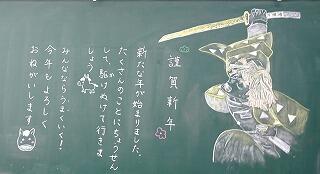 謹賀新年
新たな年が始まりました。
たくさんのことにちょうせん
して、駆けぬけて行きま
しょう
みんなならうまくいく!
今年もよろしく
おねがいします